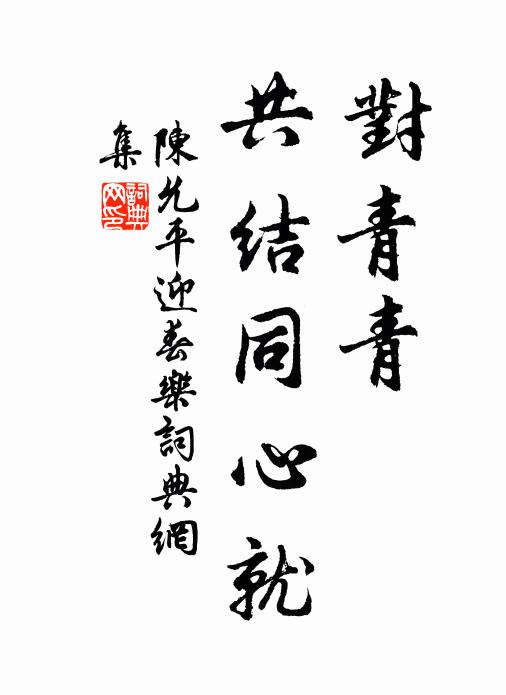 對青青
共結同心就
陳允平迎春樂詞典網
集
詞典
网印